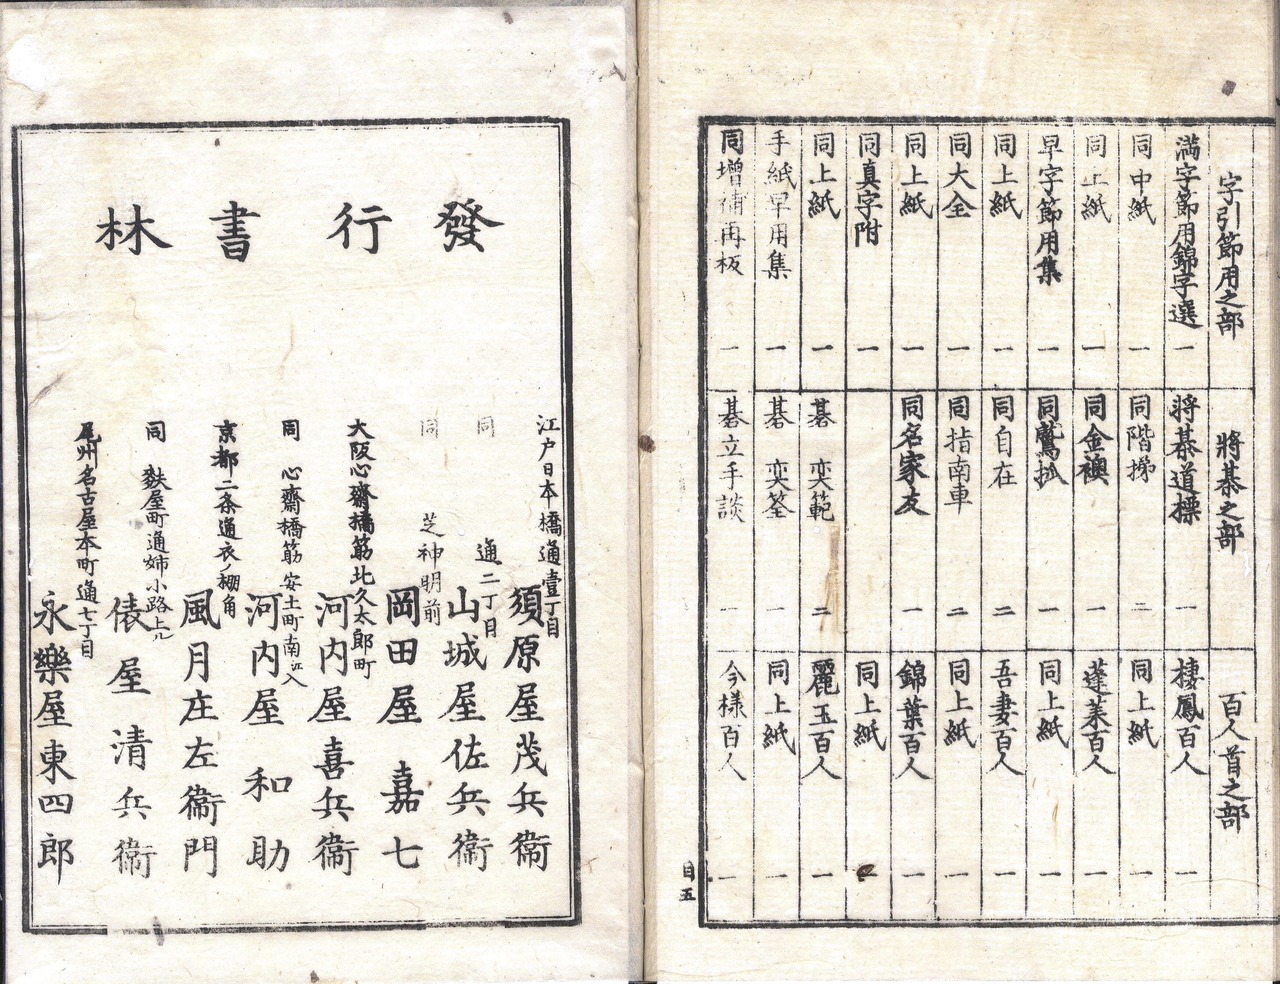 字引節用之部
満字節用錦字選 一
同中紙 一
同上紙 一
早字節用集 一
同上紙 一
同大全 一
同上紙 一
同真字附 一
同上紙 一
手紙早用集 一
同増補再板 一
將棊之部
將棊道標 一
同階梯 二
同金襖 一
同鷙抓 一
同自在 二
同指南車 二
同名家友 一
碁奕範 二
碁奕筌 一
碁立手談 一
百人首之部
棲鳳百人 一
同上紙 一
蓬莱百人 一
同上紙 一
吾妻百人 一
同上紙 一
錦葉百人 一
同上紙
麗玉百人 一
同上紙 一
今様百人 一
目五
發行書林
江戸日本橋通壹丁目
須原屋茂兵衞
同 通二丁目
山城屋佐兵衞
同 芝神明前
岡田屋嘉七
大阪心齋橋筋北久太郎町
河内屋喜兵衞
同 心齋橋筋安土町南江入
河内屋和助
京都二条通衣ノ棚角
風月庄左衞門
同 麩屋町通姉小路上ル
俵屋清兵衞
尾州名古屋本町通七丁目
永樂屋東四郎